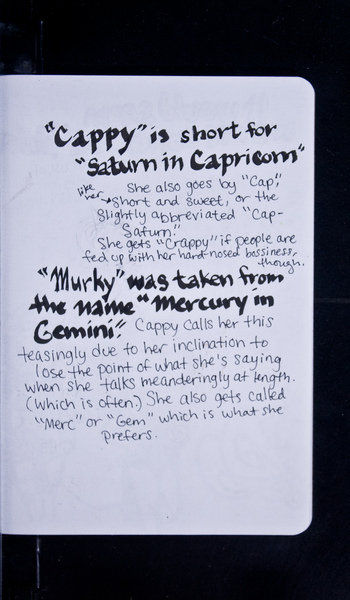 "Cappy" is short for
"Saturn in Capricorn"
She also goes by "Cap",
like her
short and sweet, or the
slightly abbreviated "Cap-
Saturn."
She gets "Crappy" if people are
fed up with her hard-nosed bossiness,
though.
"Murky" was taken from
the name "Mercury in
Gemini". Cappy calls her this
teasingly due to her inclination to
lose the point of what she's saying
when she talks meanderingly at length.
(Which is often.) She also gets called
"Merc" or "Gem" which is what she
prefers.